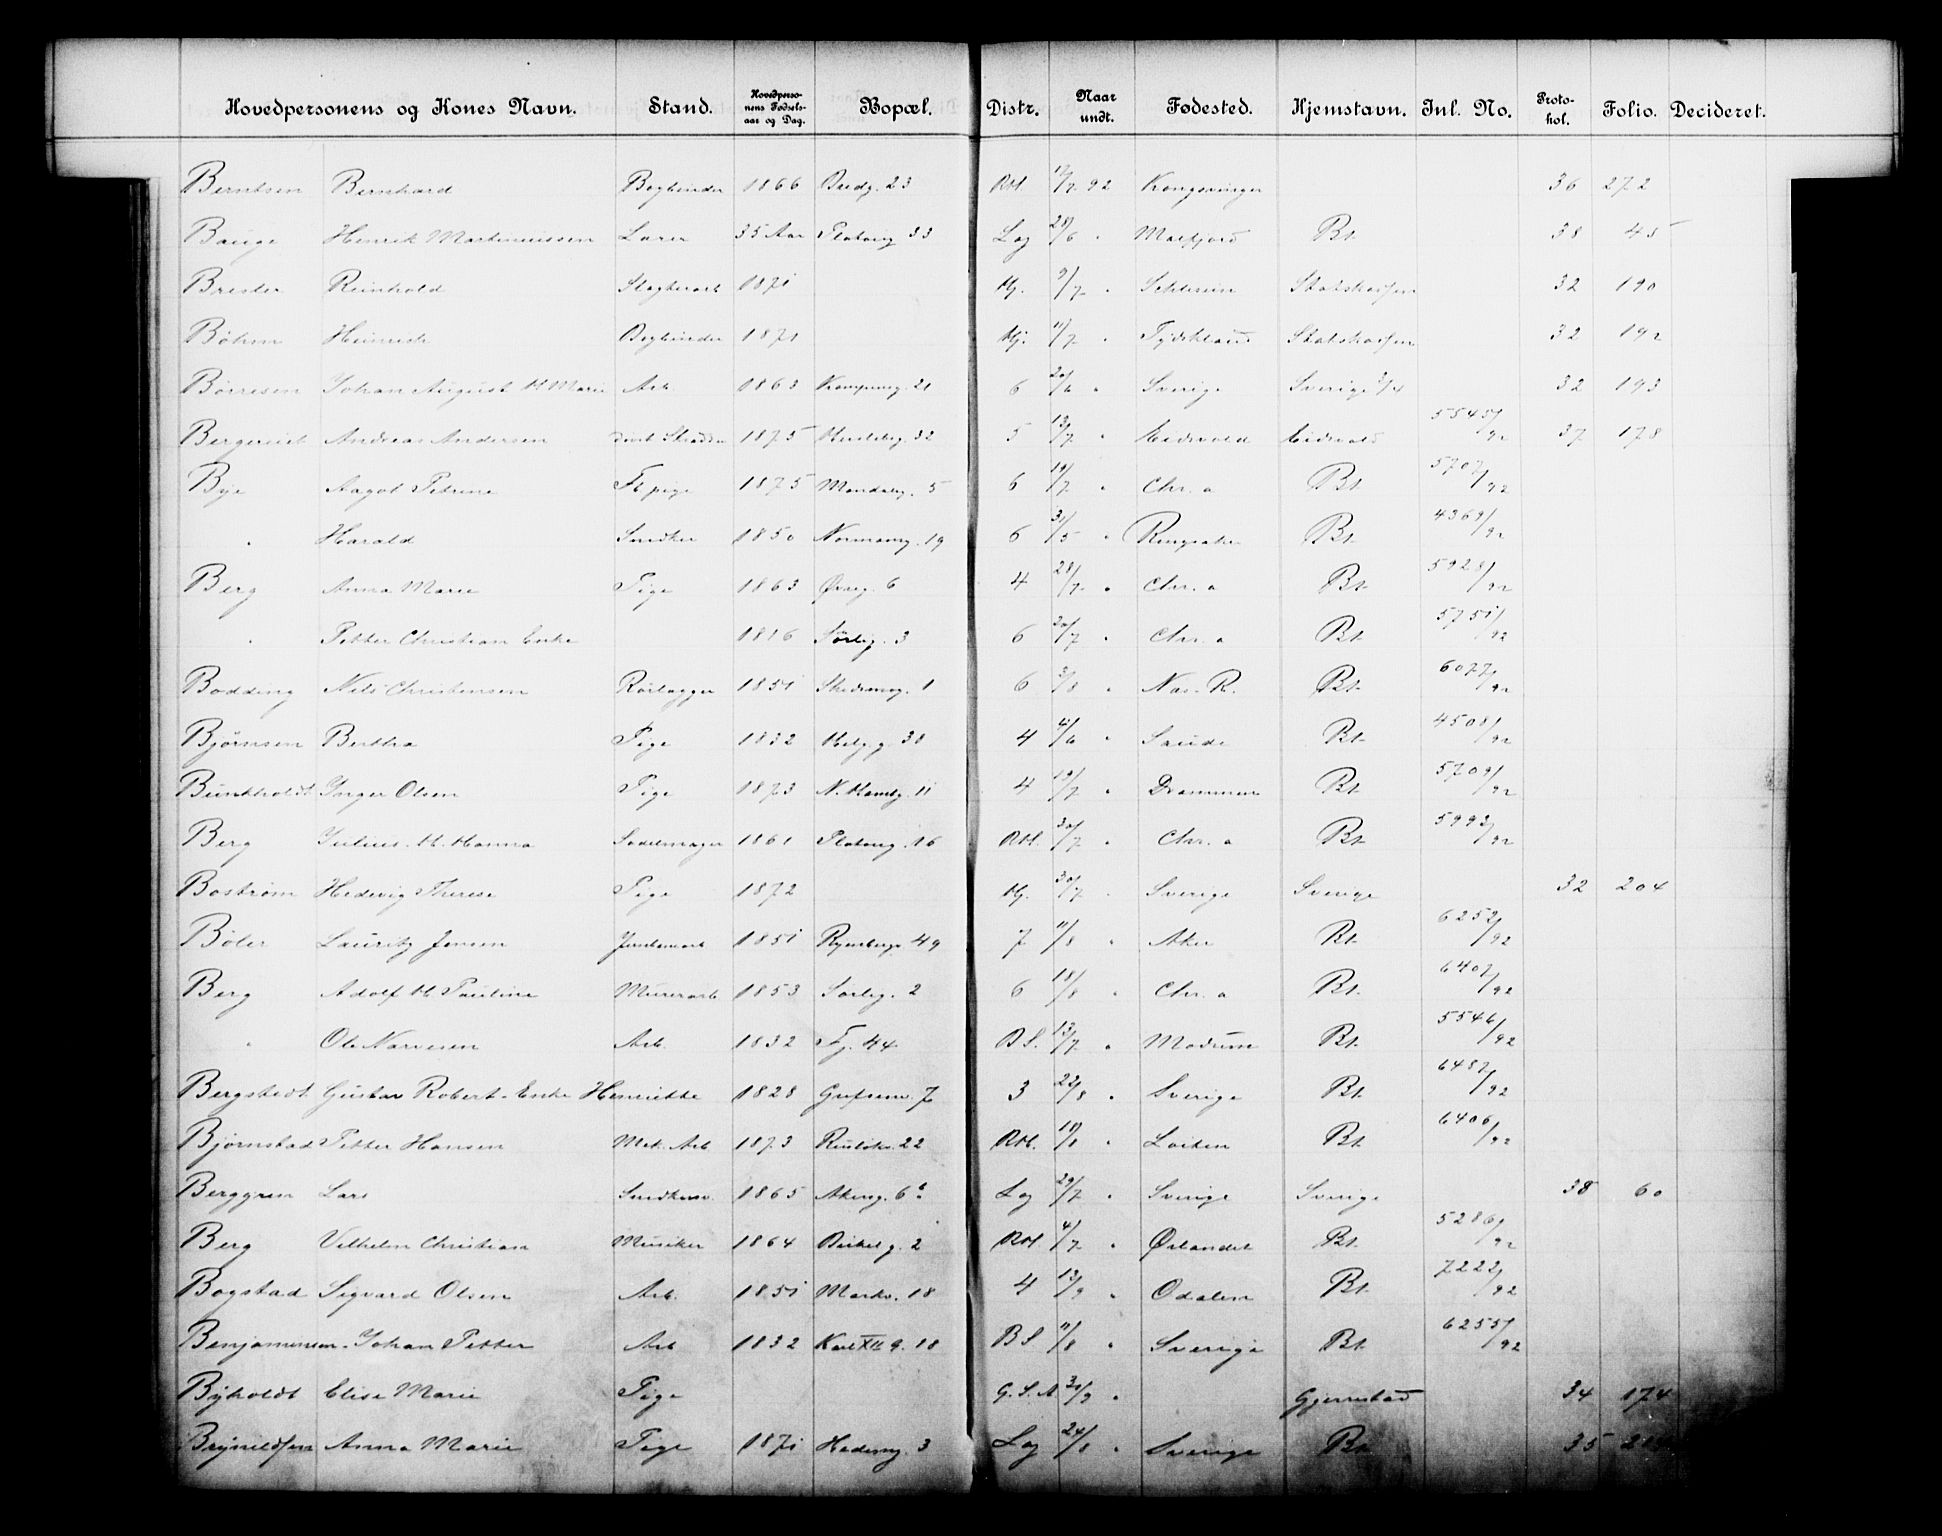 Hovedpersonens og Kones Navn. Stand. Hovedperso-nens Fødsels-aar og Dag. Bopæl. Distr. Naar undt. Fødested. Hjemstavn. Inl. No. Proto-kol. Folio. Decideret.
Berntsen Bernhard Bogbinder 1866 Bredg. 23 RM. 12/7 92 Kongsvinger 36 272
Bauge Henrik Martinussen Lærer 35 Aar Platoug 33 Lag 28/6 " Malfjord Bt. 38 45
Brester Reinhold Slagterarb 1871 Hj. 9/7 " Schlesien Statskassen 32 190
Böhm Heinrich Bogbinder 1871 Hj. 11/7 " Tydskland Statskassen 32 192
Börresen Johan August H. Marie Arb. 1863 Kampeng. 21 6 20/6 " Sverige Sverige 3/4 32 193
Bergquist Andreas Andersen 1875 32 5 13/7 " Eidsvold Eidsvold 5545/92 37 178
Bye Aagot Petrine Ft pige 1875 Mandalg. 5 6 19/7 " Chr. a Bt. 5707/92
" Harald Snedker 1850 Normanng. 19 6 31/5 " Ringsaker Bt. 4369/92
Berg Anna Marie Pige 1863 Øvreg. 6 4 28/7 " Chr. a Bt. 5928/92
" Petter Christian Enke 1816 Sørlig. 3 6 20/7 " Chr. a Bt. 5751/92
Bodding Nils Christensen Rörlægger 1851 Skedsmog. 1 6 3/8 " Nas. R. Bt. 6077/92
Björnsen Berthe Pige 1832 Helg. g. 30 4 4/6 " Saude Bt. 4508/92
Bunkholdt Inger Olsen Pige 1873 N. Hambg. 11 4 19/7 " Drammen Bt. 5709/92
Berg Julius. H. Hanna Sadelmager 1861 Platoug. 16 RM. 30/7 " Chr. a Bt. 5992/92
Boström Hedevig Therese Pige 1872 Hj. 30/7 " Sverige Sverige 32 204
Böler Lauritz Jensen Jernbanearb 1851 Ryenbergs 49 7 11/8 " Aker Bt. 6252/92
Berg Adolf H. Pauline Murerarb 1853 Sørlig. 2 6 18/8 " Chr. a Bt. 6407/92
" Ole Narvesen Arb. 1832 Fj. 44 BS. 13/7 " Modum Bt. 5546/92
Bergstedt Gustav Robert. Enke Henriette 1828 Grefsenv. 7 3 22/8 " Sverige Bt. 6487/92
Björnstad Petter Hansen Mek. Arb 1873 22 RM. 18/8 " Loiten Bt. 6406/92
Berggren Lars Snedkersv. 1865 Akersg. 6 Lag 29/7 " Sverige Sverige 38 60
Berg Vilhelm Christian Musiker 1864 Birkel g. 2 RM. 4/7 " Ørlandet Bt. 5286/92
Bogstad Sigvard Olsen Arb. 1851 Markv. 18 4 13/9 " Odalen Bt. 7222/92
Benjaminsen. Johan Petter Arb 1832 Karl XII g. 18 BS 11/8 " Sverige Bt. 6255/92
Byholdt Elise Marie Pige G. S. A 30/9 " Gjerrestad 34 174
Brynildsen Anna Marie Pige 1871 Hedemg. 3 Lag 24/8 " Sverige Bt 35